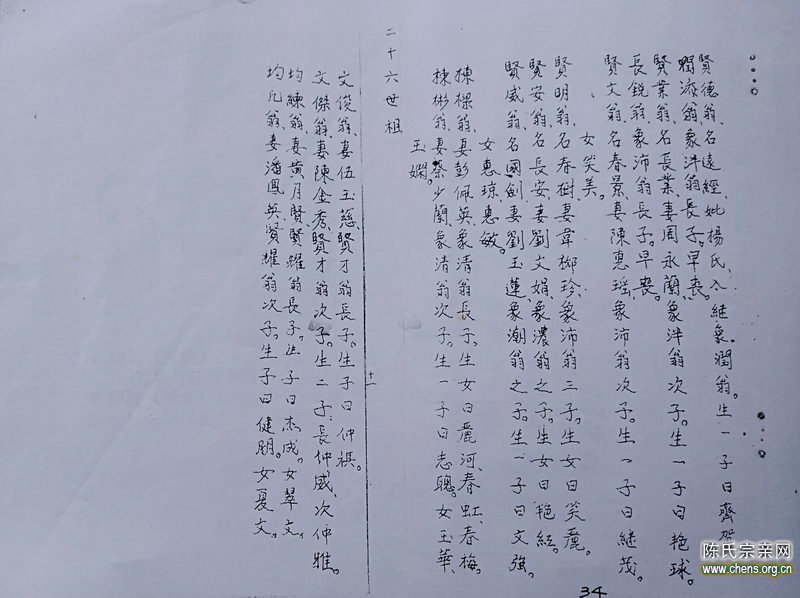 賢德翁、名遠經、妣楊氏、入繼象潤翁。生一子曰齊
潤派翁、象泮翁長子。早喪。
賢業翁、名長業、妻周永蘭、象泮翁次子。生一子曰艳球。
長銳翁、象沛翁長子。早喪。
賢文翁、名春景、妻陳惠瑶、象沛翁次子。生一子曰継茂。
女笑美。
賢明翁、名春樹、妻韋柳珍、象沛翁三子。生女曰笑麗。
賢安翁、名長安、妻劉文娟、象濃翁之子。生女曰艳紅。
賢威翁、名國劍、妻劉玉蓮、象潮翁之子。生一子曰文強。
女惠琼、惠敏。
棟樑翁、妻彭佩英、象清翁長子。生女曰麗河、春虹、春梅。
棟彬翁、妻蔡少蘭、象清翁次子。生一子曰志聰。女玉華、
玉嫻。
二十六世祖
十一
文俊翁、妻伍玉慈、賢才翁長子。生子曰仲祺。
文傑翁、妻陳金秀、賢才翁次子。生二子:長仲威、次仲雅。
均練翁、妻黄月賢、賢耀翁長子。生子曰杰成。女翠文。
均允翁、妻潘鳳英、賢耀翁次子。生子曰健朋。女夏文。
34
陈氏宗亲网
www.chens.org.cn